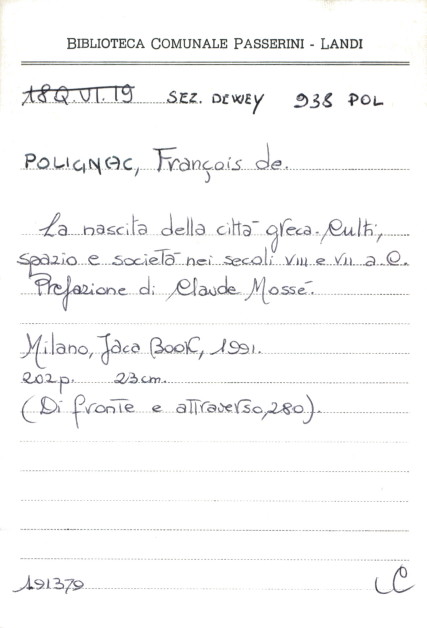 BIBLIOTECA COMUNALE PASSERINI - LANDI
18Q.VI.19 SEZ. DEWEY 938 POL
POLIGNAC, François de.
La nascita della città greca. Culti,
spazio e società nei secoli VIII e VII a.C.
Prefazione di Claude Mossé.
Milano, Jaca Book, 1991.
202p. 23cm.
(Di fronte e attraverso, 280).
191379 C